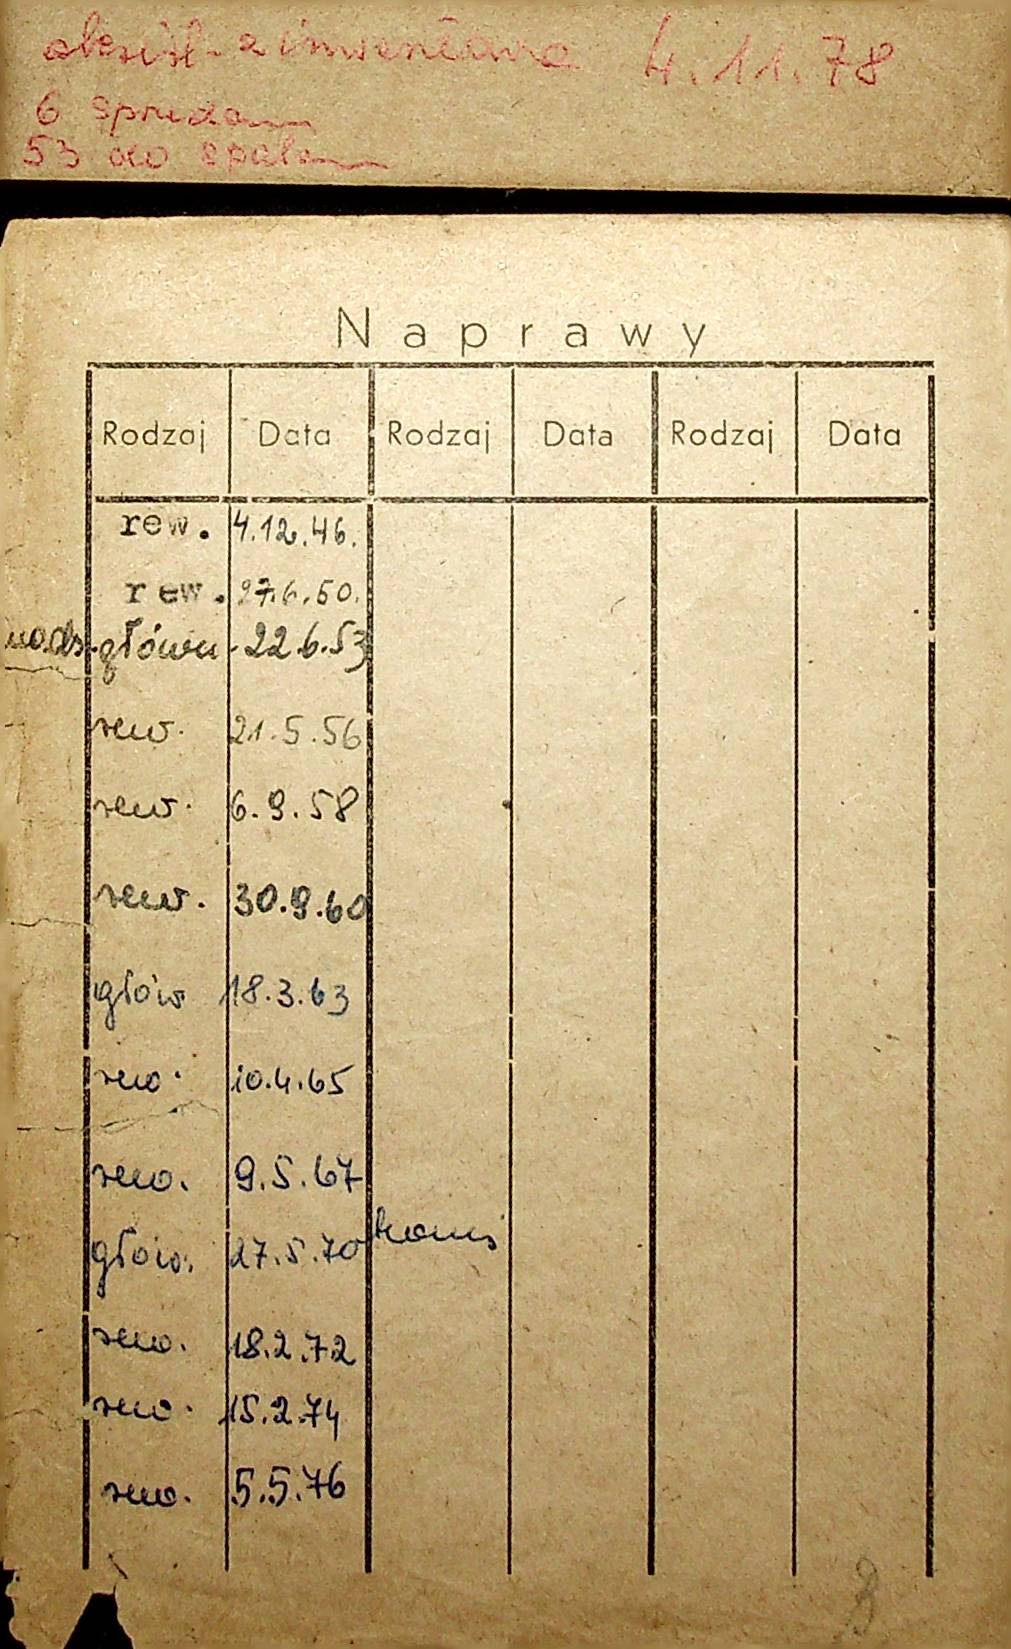 skreśl. z inwentarza 4.11.78
6 sprzedam
53 do spalen
Naprawy
Rodzaj Data Rodzaj Data Rodzaj Data
rew. 4.12.46.
rew. 27.6.50.
nads. główn. 22.6.53
rew. 21.5.56
rew. 6.9.58
rew. 30.9.60
głów 18.3.63
rew. 10.4.65
rew. 9.5.67
głów. 27.5.70
rew. 18.2.72
rew. 15.2.74
rew. 5.5.76
8